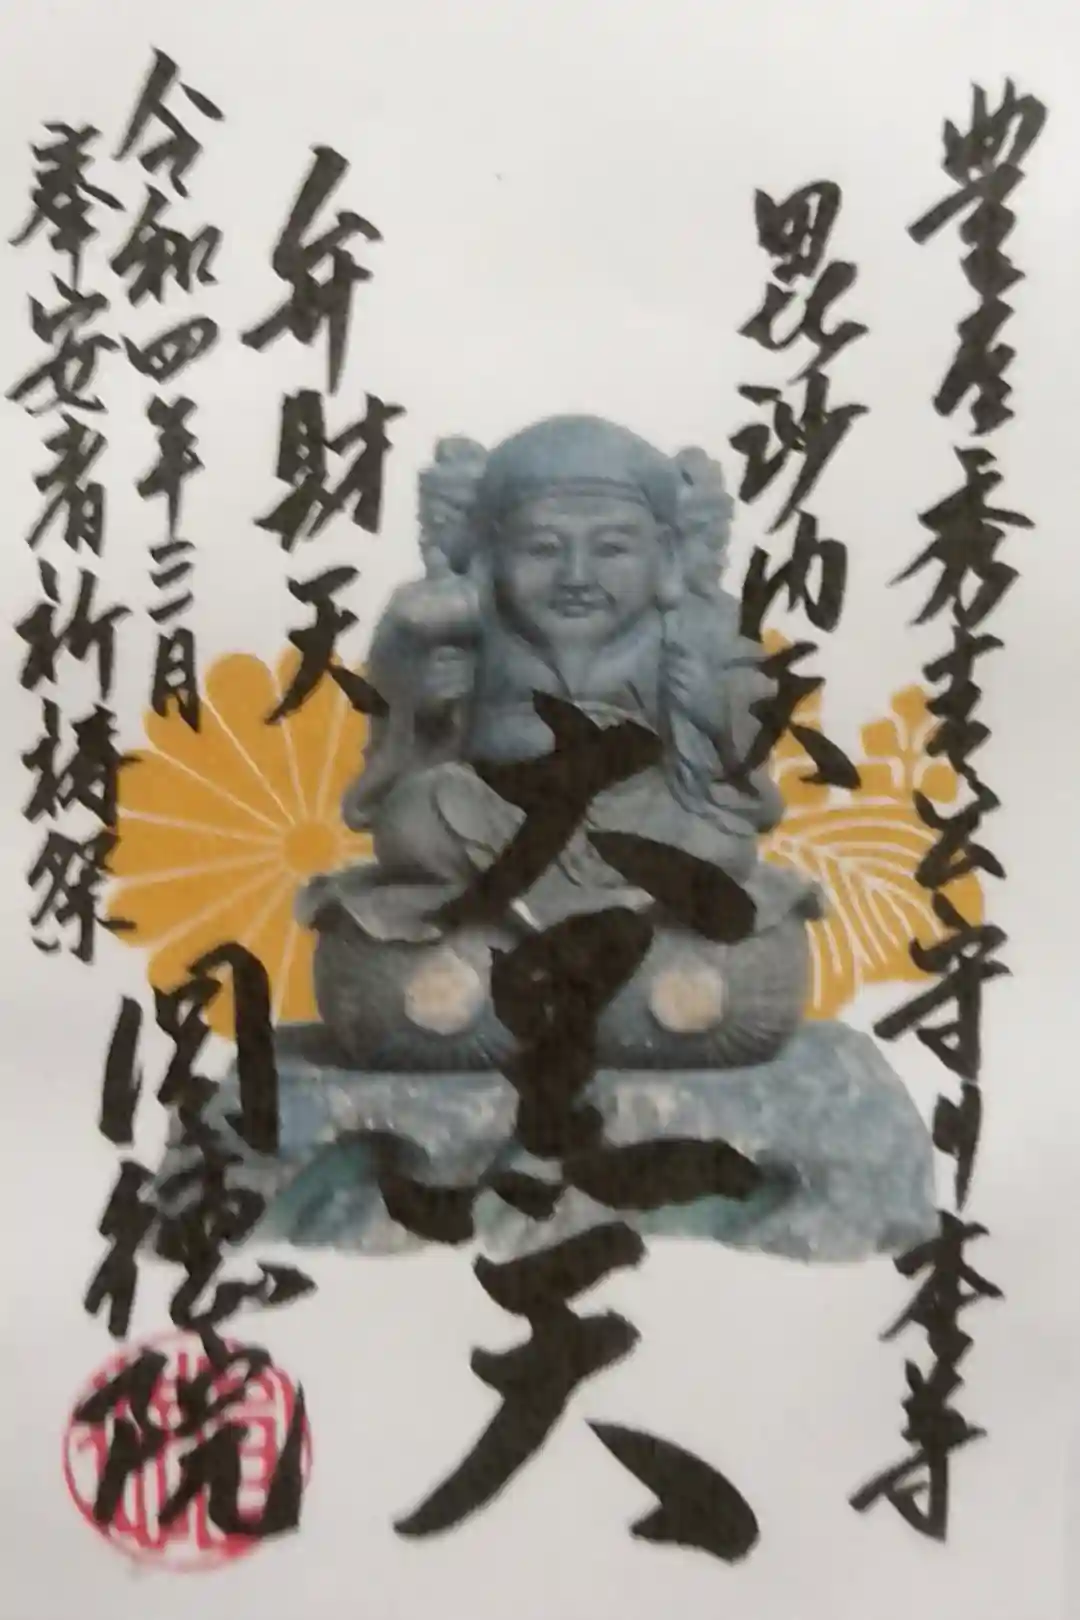 豊臣秀吉公守り本尊
毘沙門天
大黒天
弁財天
令和四年三月
奉安者祈祷祭
圓徳院